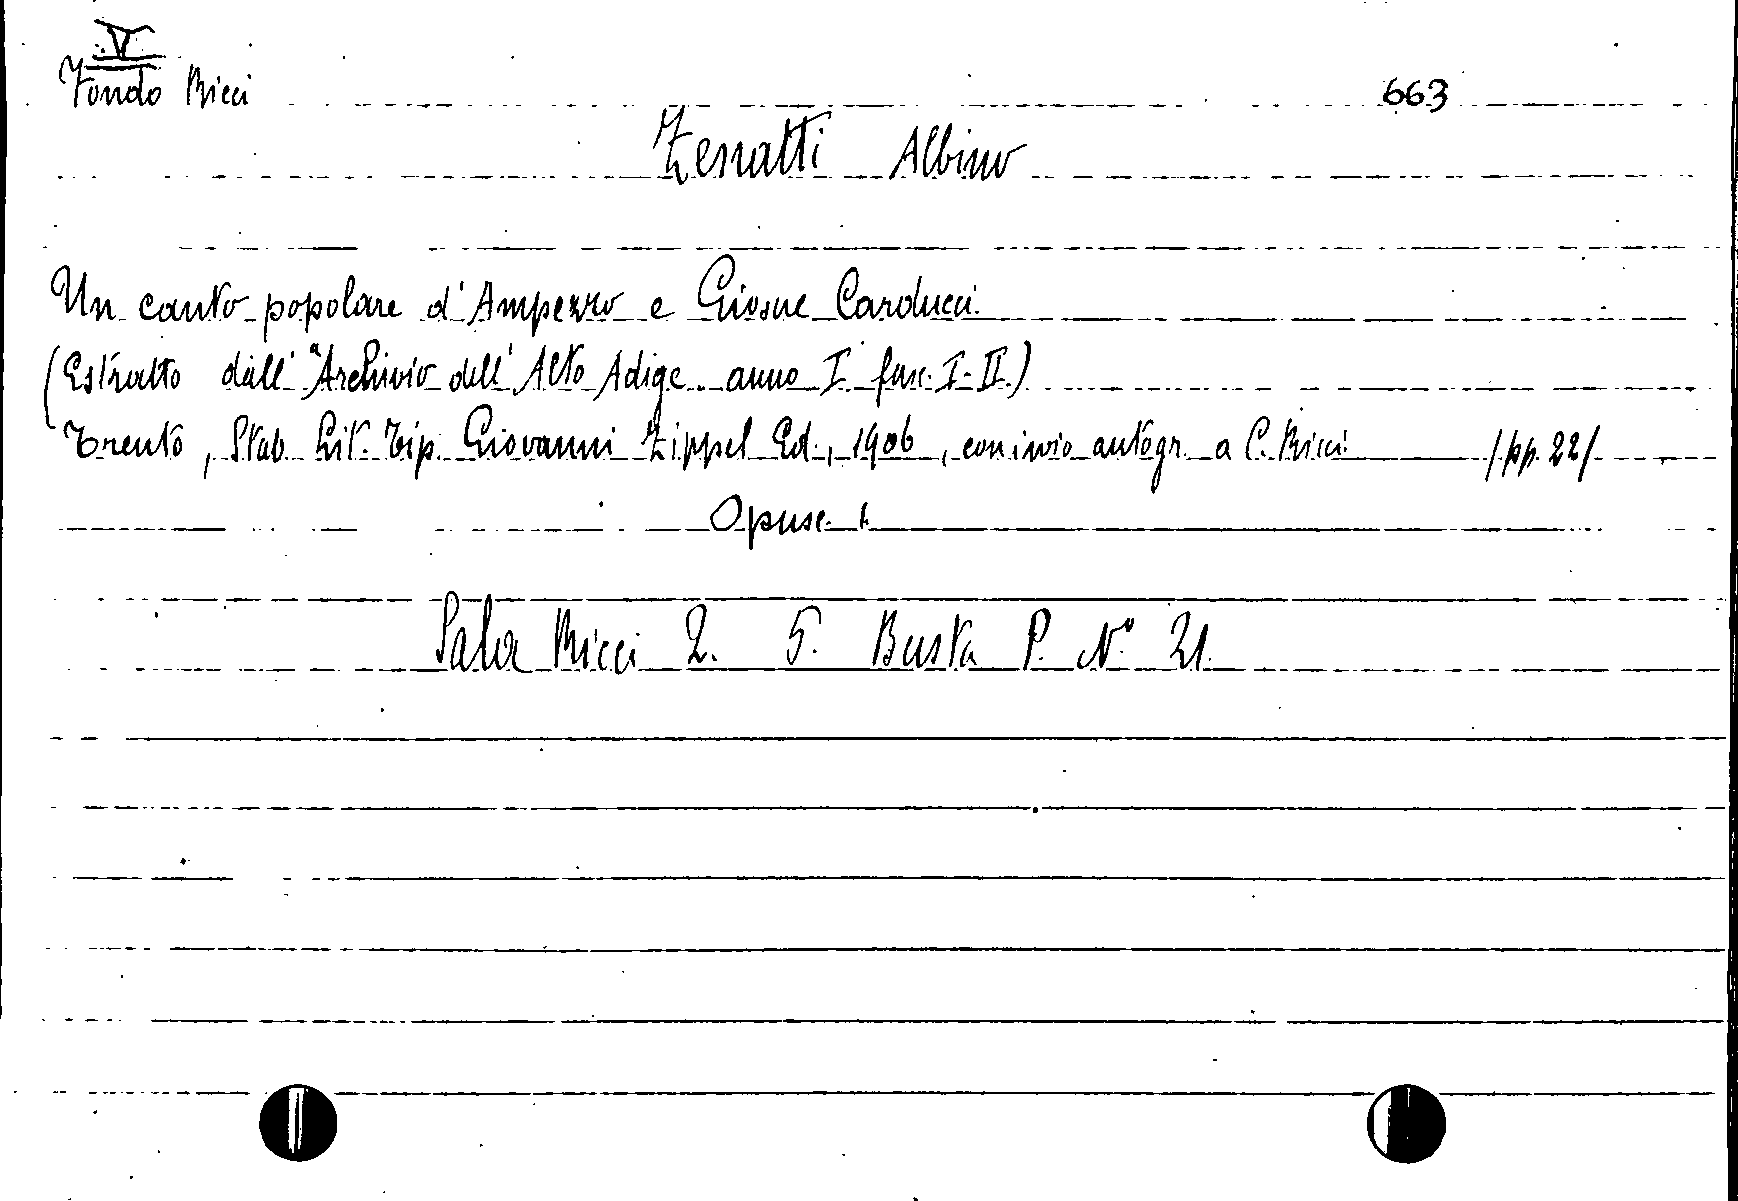 V
Fondo Ricci 663
Zenatti Albino
Un canto popolare d'Ampezzo e Giosue Carducci.
(Estratto dall' "Archivio dell' Alto Adige anno I. fasc. I-II.)
Trento, Stab. Lit. Tip. Giovanni Zippel Ed., 1906, con invio autogr. a C. Ricci. /pp. 22/
Opusc. 1.
Sala Ricci 2. 5. Busta P. N° 21.